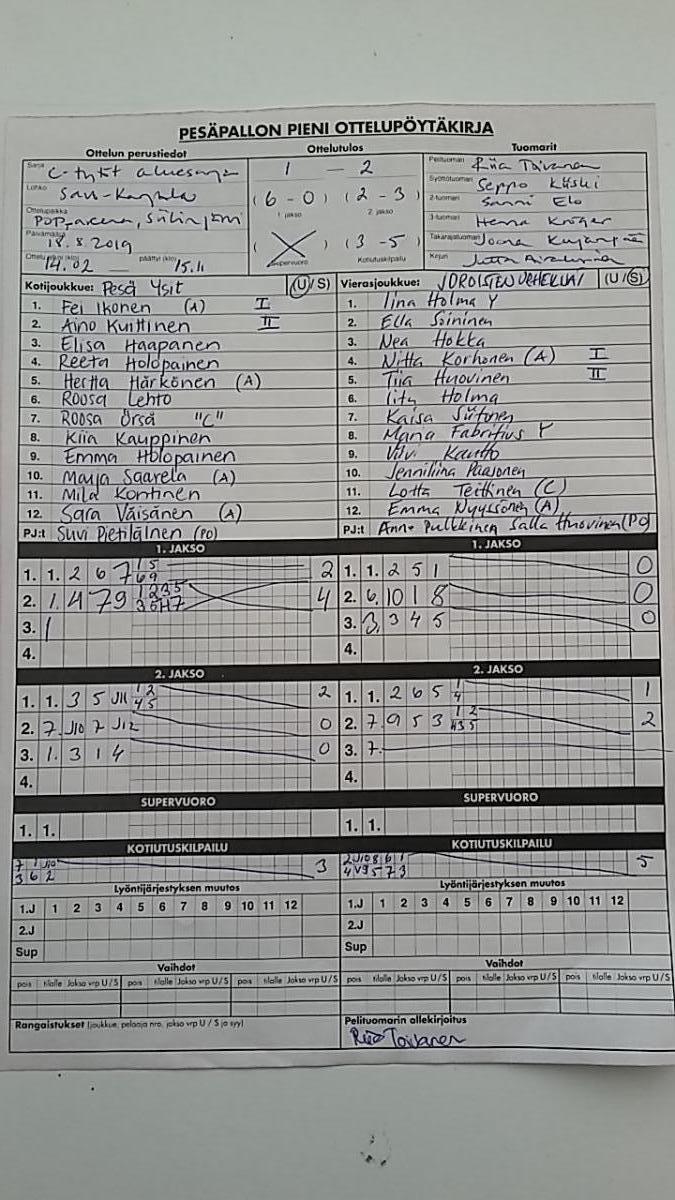 PESÄPALLON PIENI OTTELUPÖYTÄKIRJA
Ottelun perustiedot Ottelutulos Tuomarit
Sarja C-tytöt aluesarja
Lohko Savo-Karjala
Ottelupaikka POP-areena, Siilinjärvi
Päivämäärä 18.8.2019
Ottelu alkoi (klo) 14.02 päättyi (klo) 15.11
1 - 2
(6 - 0) (2 - 3)
1 jakso 2. jakso
( X ) (3 - 5)
Supervuoro Kotiutuskilpailu
Pelituomari Riia Toivanen
Syöttötuomari Seppo Kiiski
2-tuomari Sanni Elo
3-tuomari Henna Kröger
Takarajatuomari Joona
Kirjuri Jutta
Kotijoukkue: Pesä Ysit (U/S)
1. Fei Ikonen (A) I
2. Aino Kuittinen II
3. Elisa Haapanen
4. Reeta Holopainen
5. Hertta Härkönen (A)
6. Roosa Lehto
7. Roosa Örså "C"
8. Kiia Kauppinen
9. Emma Holopainen
10. Maija Saarela (A)
11. Mila Kontinen
12. Sara Väisänen (A)
PJ:t Suvi Pietiläinen (PO)
Vierasjoukkue: JOROISTEN URHEILIJAT (U/S)
1. Iina Holma Y
2. Ella Soininen
3. Nea Hokka
4. Nitta Korhonen (A) I
5. Tiia Huovinen II
6. Iity Holma
7. Kaisa Siitonen
8. Maria Fabritius Y
9. Vilvi Kautto
10. Jenniliina Paasonen
11. Lotta Teittinen (C)
12. Emma Nyyssönen (A)
PJ:t Anne Pulkkinen Salla Huovinen (PO)
1. JAKSO
1. 1. 2 6 7 1 5 6 9 2
2. 1. 4 7 9 1 2 3 5 3 5 4 7 4
3. 1
4.
1. JAKSO
1. 1. 2 5 1 0
2. 6. 10 1 8 0
3. 3. 3 4 5 0
4.
2. JAKSO
1. 1. 3 5 J11 1 2 4 5 2
2. 7. J10 7 J12 0
3. 1. 3 1 4 0
4.
2. JAKSO
1. 1. 2 6 5 1 4 1
2. 7. 9 5 3 1 2 4 3 5 2
3. 7.
4.
SUPERVUORO
1. 1.
SUPERVUORO
1. 1.
KOTIUTUSKILPAILU
7 1 J10 3
3 6 2
KOTIUTUSKILPAILU
2 J10 8 6 1 5
4 V9 5 7 3
Lyöntijärjestyksen muutos
1.J 1 2 3 4 5 6 7 8 9 10 11 12
2.J
Sup
Lyöntijärjestyksen muutos
1.J 1 2 3 4 5 6 7 8 9 10 11 12
2.J
Sup
Vaihdot
pois tilalle Jakso vrp U / S pois tilalle Jakso vrp U / S pois tilalle Jakso vrp U / S
Vaihdot
pois tilalle Jakso vrp U / S pois tilalle Jakso vrp U / S pois tilalle Jakso vrp U / S
Rangaistukset (joukkue, pelaaja nro, jakso vrp U / S ja syy)
Pelituomarin allekirjoitus
Riia Toivanen